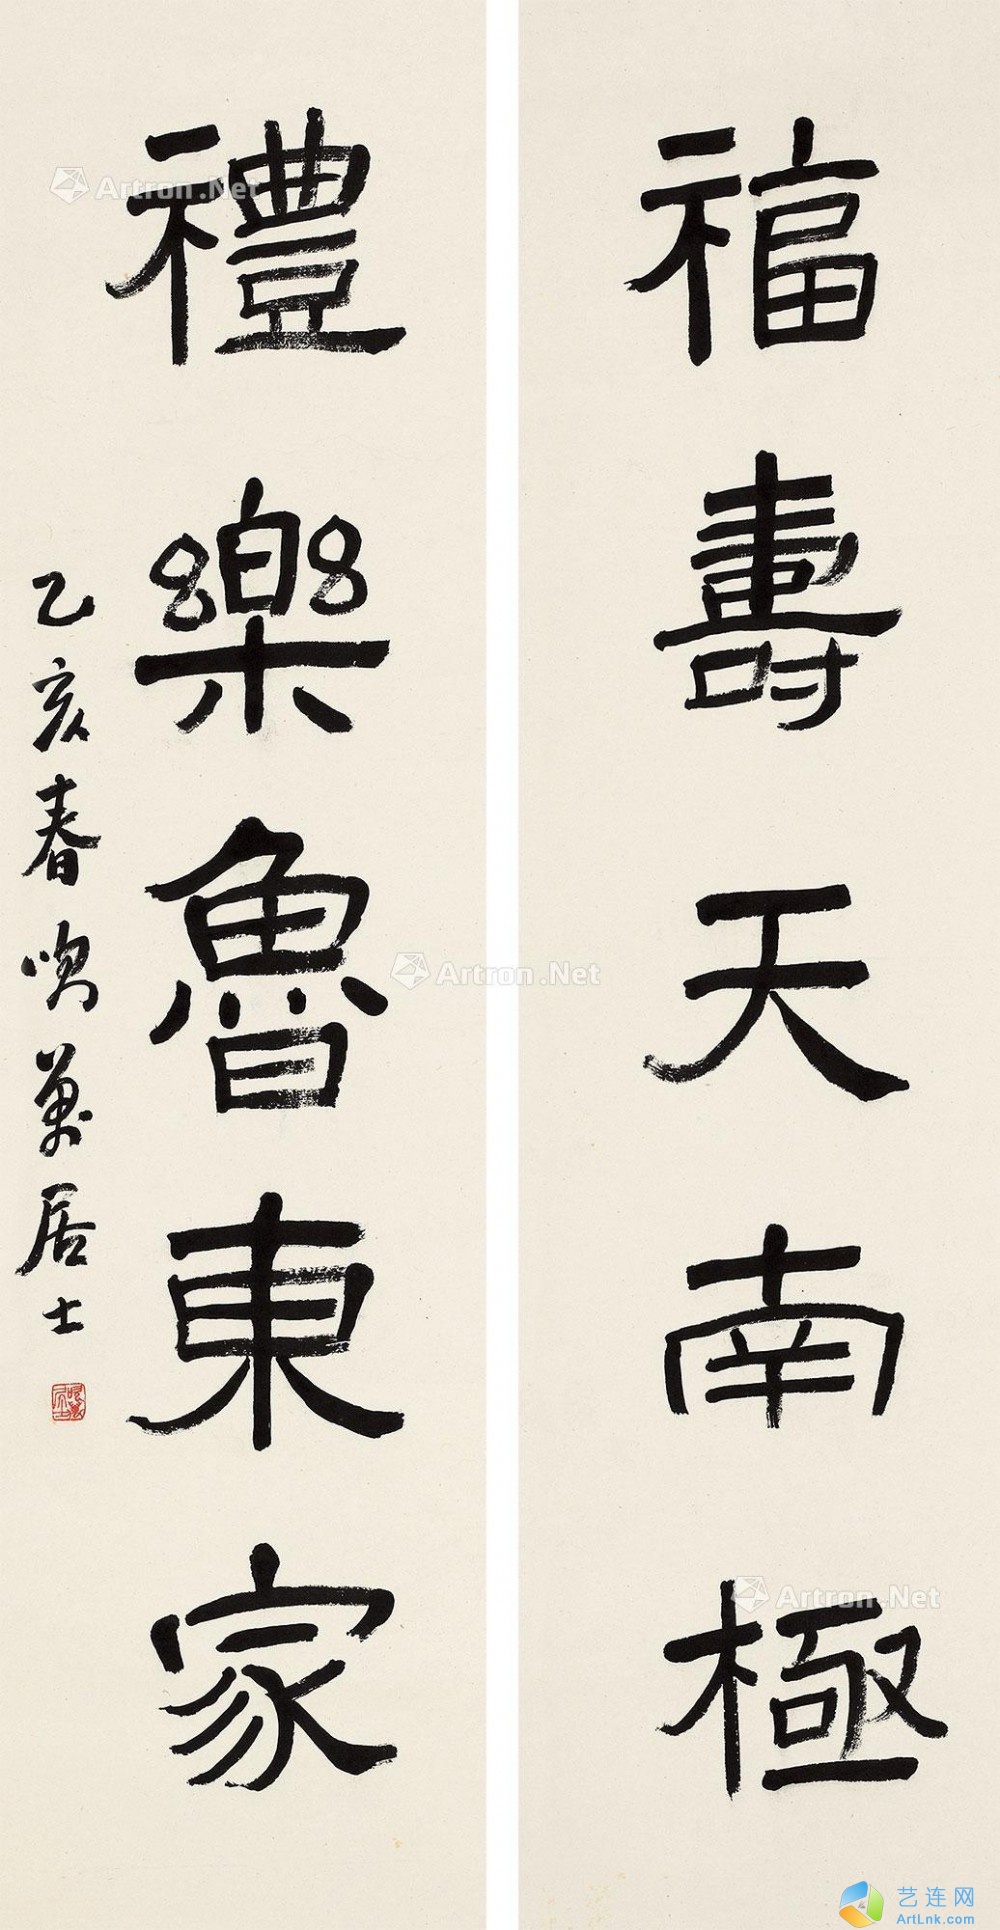 福壽天南極
禮樂魯東家
乙亥春吹萬居士
Artron.Net
Artron.Net
Artron.Net
艺连网
ArtLnk.com